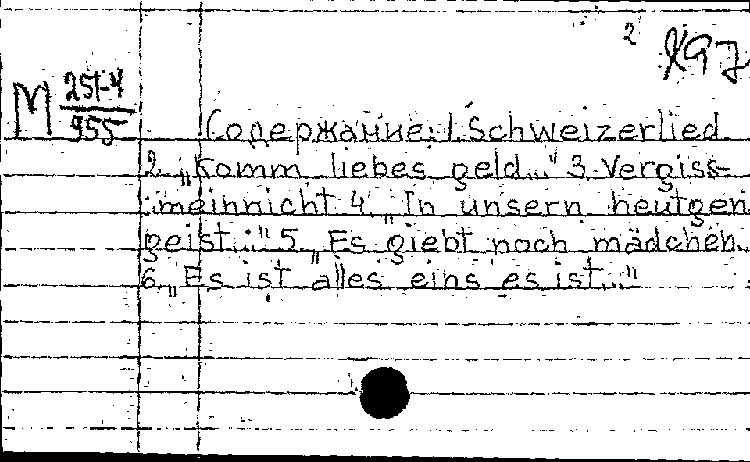 2
M 251-4
955
Содержание: 1. Schweizerlied
2. „Komm liebes geld..." 3. Vergiss-
meinnicht 4. „In unsern heutgen
geist..." 5. „Es giebt noch mädchen
6. „Es ist alles eins es ist..."